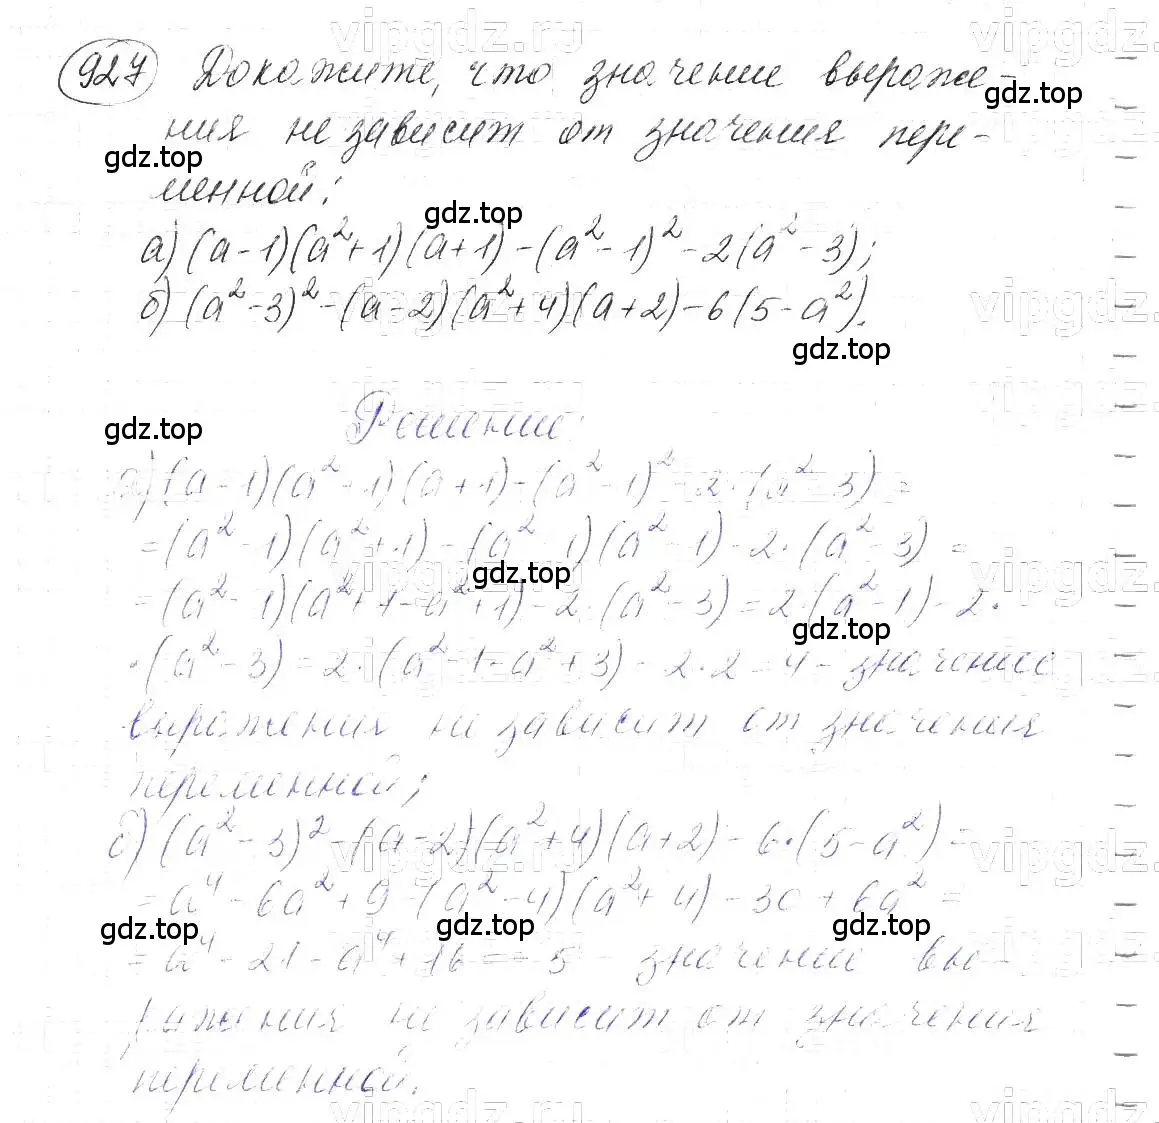 927 Докажите, что значение выраже-
ния не зависит от значения пере-
менной:
а) (a-1)(a²+1)(a+1)-(a²-1)²-2(a²-3);
б) (a²-3)²-(a-2)(a²+4)(a+2)-6(5-a²).
Решение:
а) (a-1)(a²-1)(a+1)-(a²-1)²-2·(a²-3)=
=(a²-1)(a²+1)-(a²-1)(a²-1)-2·(a²-3)=
=(a²-1)(a²+1-a²+1)-2·(a²-3)=2·(a²-1)-2·
·(a²-3)=2·(a²-1-a²+3)=2·2=4 - значение
выражения не зависит от значения
переменной;
б) (a²-3)²-(a-2)(a²+4)(a+2)-6·(5-a²)=
=a⁴-6a²+9-(a²-4)(a²+4)-30+6a²=
=a⁴-21-a⁴+16=-5 - значение вы-
ражения не зависит от значения
переменной.
gdz.top
gdz.top
gdz.top
gdz.top
gdz.top
gdz.top
gdz.top
gdz.top
gdz.top
gdz.top
vipgdz.ru
vipgdz.
vipgdz.ru
vipgdz.
vipgdz.ru
vipgdz.
vipgdz.ru
vipgdz.
vipgdz.ru
vipgdz.